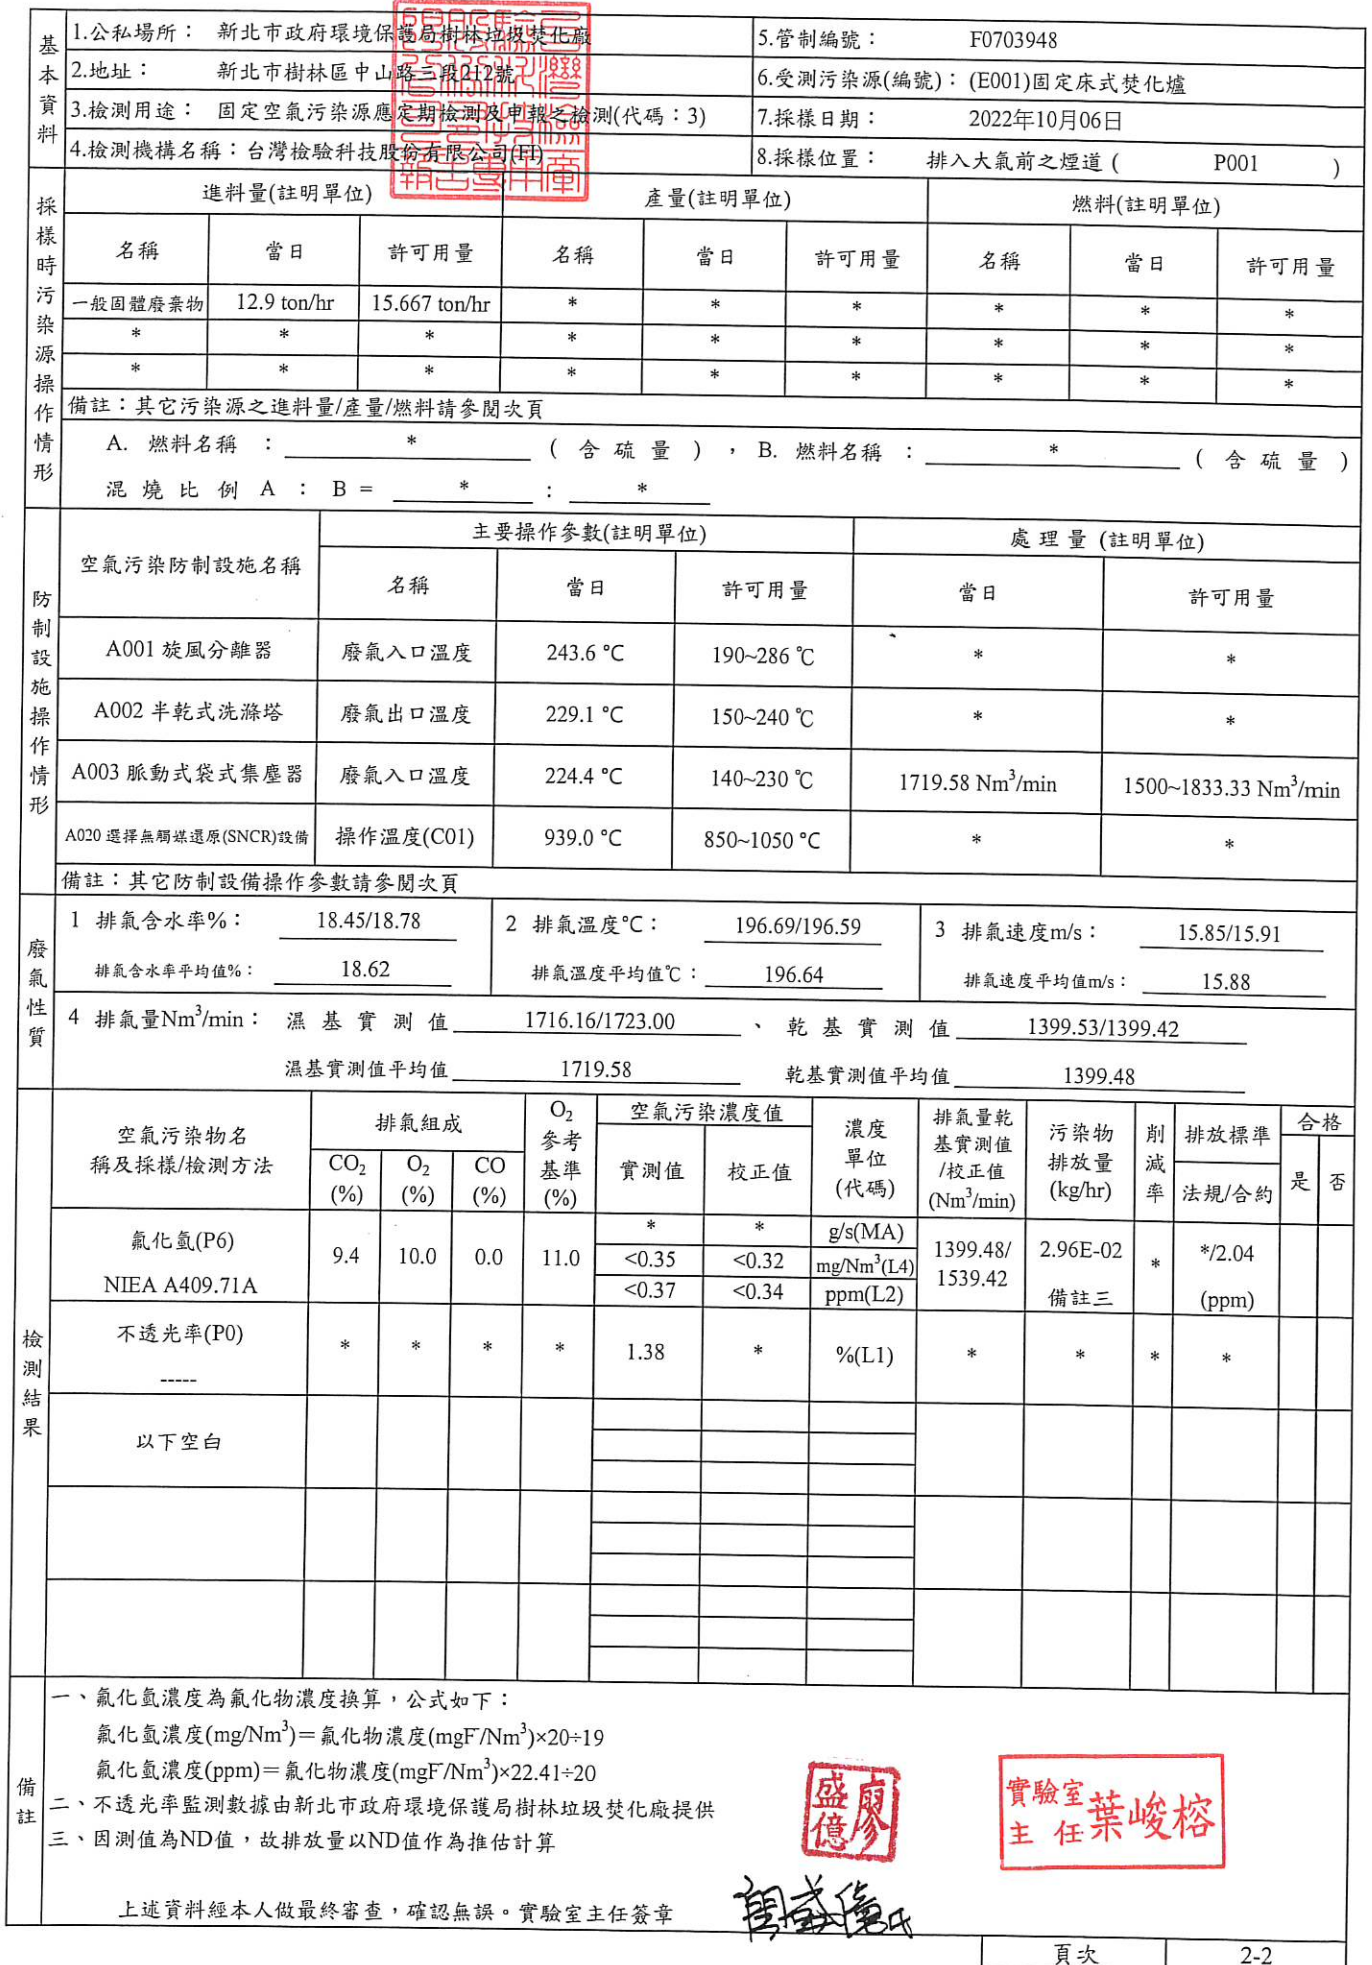 基本資料
1.公私場所： 新北市政府環境保護局樹林垃圾焚化廠
5.管制編號： F0703948
2.地址： 新北市樹林區中山路三段212號
6.受測污染源(編號)： (E001)固定床式焚化爐
3.檢測用途： 固定空氣污染源應定期檢測及申報之檢測(代碼：3)
7.採樣日期： 2022年10月06日
4.檢測機構名稱：台灣檢驗科技股份有限公司(FI)
8.採樣位置： 排入大氣前之煙道 ( P001 )
採樣時污染源操作情形
進料量(註明單位) 產量(註明單位) 燃料(註明單位)
名稱 當日 許可用量 名稱 當日 許可用量 名稱 當日 許可用量
一般固體廢棄物 12.9 ton/hr 15.667 ton/hr * * * * * *
* * * * * * * * *
* * * * * * * * *
備註：其它污染源之進料量/產量/燃料請參閱次頁
A. 燃料名稱 ： * ( 含 硫 量 ) ， B. 燃料名稱 ： * ( 含 硫 量 )
混 燒 比 例 A ： B = * : *
防制設施操作情形
空氣污染防制設施名稱 主要操作參數(註明單位) 處 理 量 (註明單位)
名稱 當日 許可用量 當日 許可用量
A001 旋風分離器 廢氣入口溫度 243.6 °C 190~286 ℃ * *
A002 半乾式洗滌塔 廢氣出口溫度 229.1 °C 150~240 ℃ * *
A003 脈動式袋式集塵器 廢氣入口溫度 224.4 °C 140~230 ℃ 1719.58 Nm³/min 1500~1833.33 Nm³/min
A020 選擇無觸媒還原(SNCR)設備 操作溫度(C01) 939.0 °C 850~1050 °C * *
備註：其它防制設備操作參數請參閱次頁
廢氣性質
1 排氣含水率%： 18.45/18.78 2 排氣溫度°C： 196.69/196.59 3 排氣速度m/s： 15.85/15.91
排氣含水率平均值%： 18.62 排氣溫度平均值℃： 196.64 排氣速度平均值m/s： 15.88
4 排氣量Nm³/min： 濕 基 實 測 值 1716.16/1723.00 、 乾 基 實 測 值 1399.53/1399.42
濕基實測值平均值 1719.58 乾基實測值平均值 1399.48
檢測結果
空氣污染物名稱及採樣/檢測方法 排氣組成 O₂參考基準(%) 空氣污染濃度值 濃度單位(代碼) 排氣量乾基實測值/校正值(Nm³/min) 污染物排放量(kg/hr) 削減率 排放標準 合格
CO₂(%) O₂(%) CO(%) 實測值 校正值 法規/合約 是 否
氟化氫(P6) NIEA A409.71A 9.4 10.0 0.0 11.0 * * g/s(MA) 1399.48/1539.42 2.96E-02 備註三 * */2.04 (ppm)
<0.35 <0.32 mg/Nm³(L4)
<0.37 <0.34 ppm(L2)
不透光率(P0) ----- * * * * 1.38 * %(L1) * * * *
以下空白
備註
一、氟化氫濃度為氟化物濃度換算，公式如下：
氟化氫濃度(mg/Nm³)＝氟化物濃度(mgF⁻/Nm³)×20÷19
氟化氫濃度(ppm)＝氟化物濃度(mgF⁻/Nm³)×22.41÷20
二、不透光率監測數據由新北市政府環境保護局樹林垃圾焚化廠提供
三、因測值為ND值，故排放量以ND值作為推估計算
廖盛億
實驗室主任 葉峻榕
上述資料經本人做最終審查，確認無誤。實驗室主任簽章
頁次 2-2